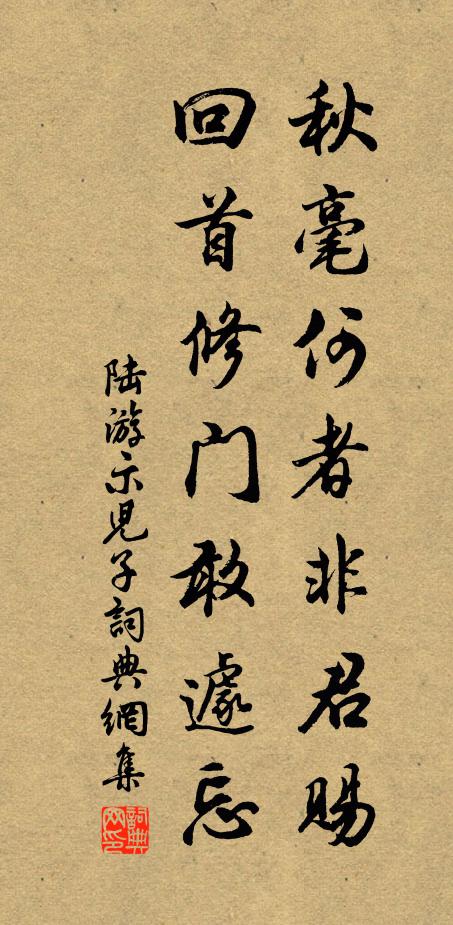 秋毫何者非君賜
回首修门敢遽忘
陆游示兒子詞典網集
詞典網印